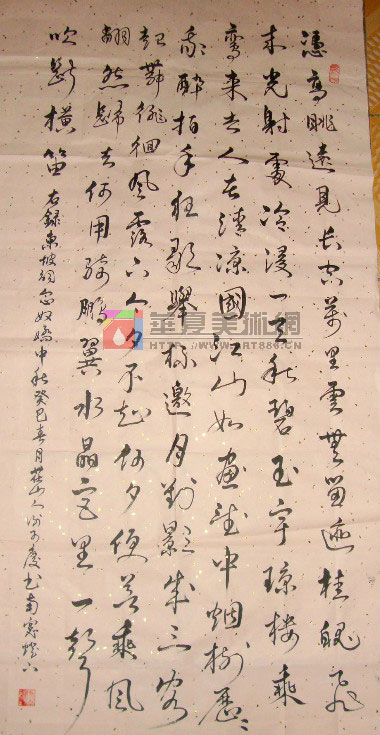 憑高眺遠見長空萬里雲無留迹桂魄飛
來光射處冷浸一天秋碧玉宇瓊樓乘
鸞來去人在清涼國江山如畫望中烟樹歷〻
我醉拍手狂歌舉杯邀月對影成三客
起舞徘徊風露下今夕不知何夕便欲乘風
翻然歸去何用騎鵬翼水晶宮里一聲
吹斷橫笛
右錄東坡詞念奴嬌中秋癸巳春月
華夏美術網
HTTP://WWW.ART886.CN